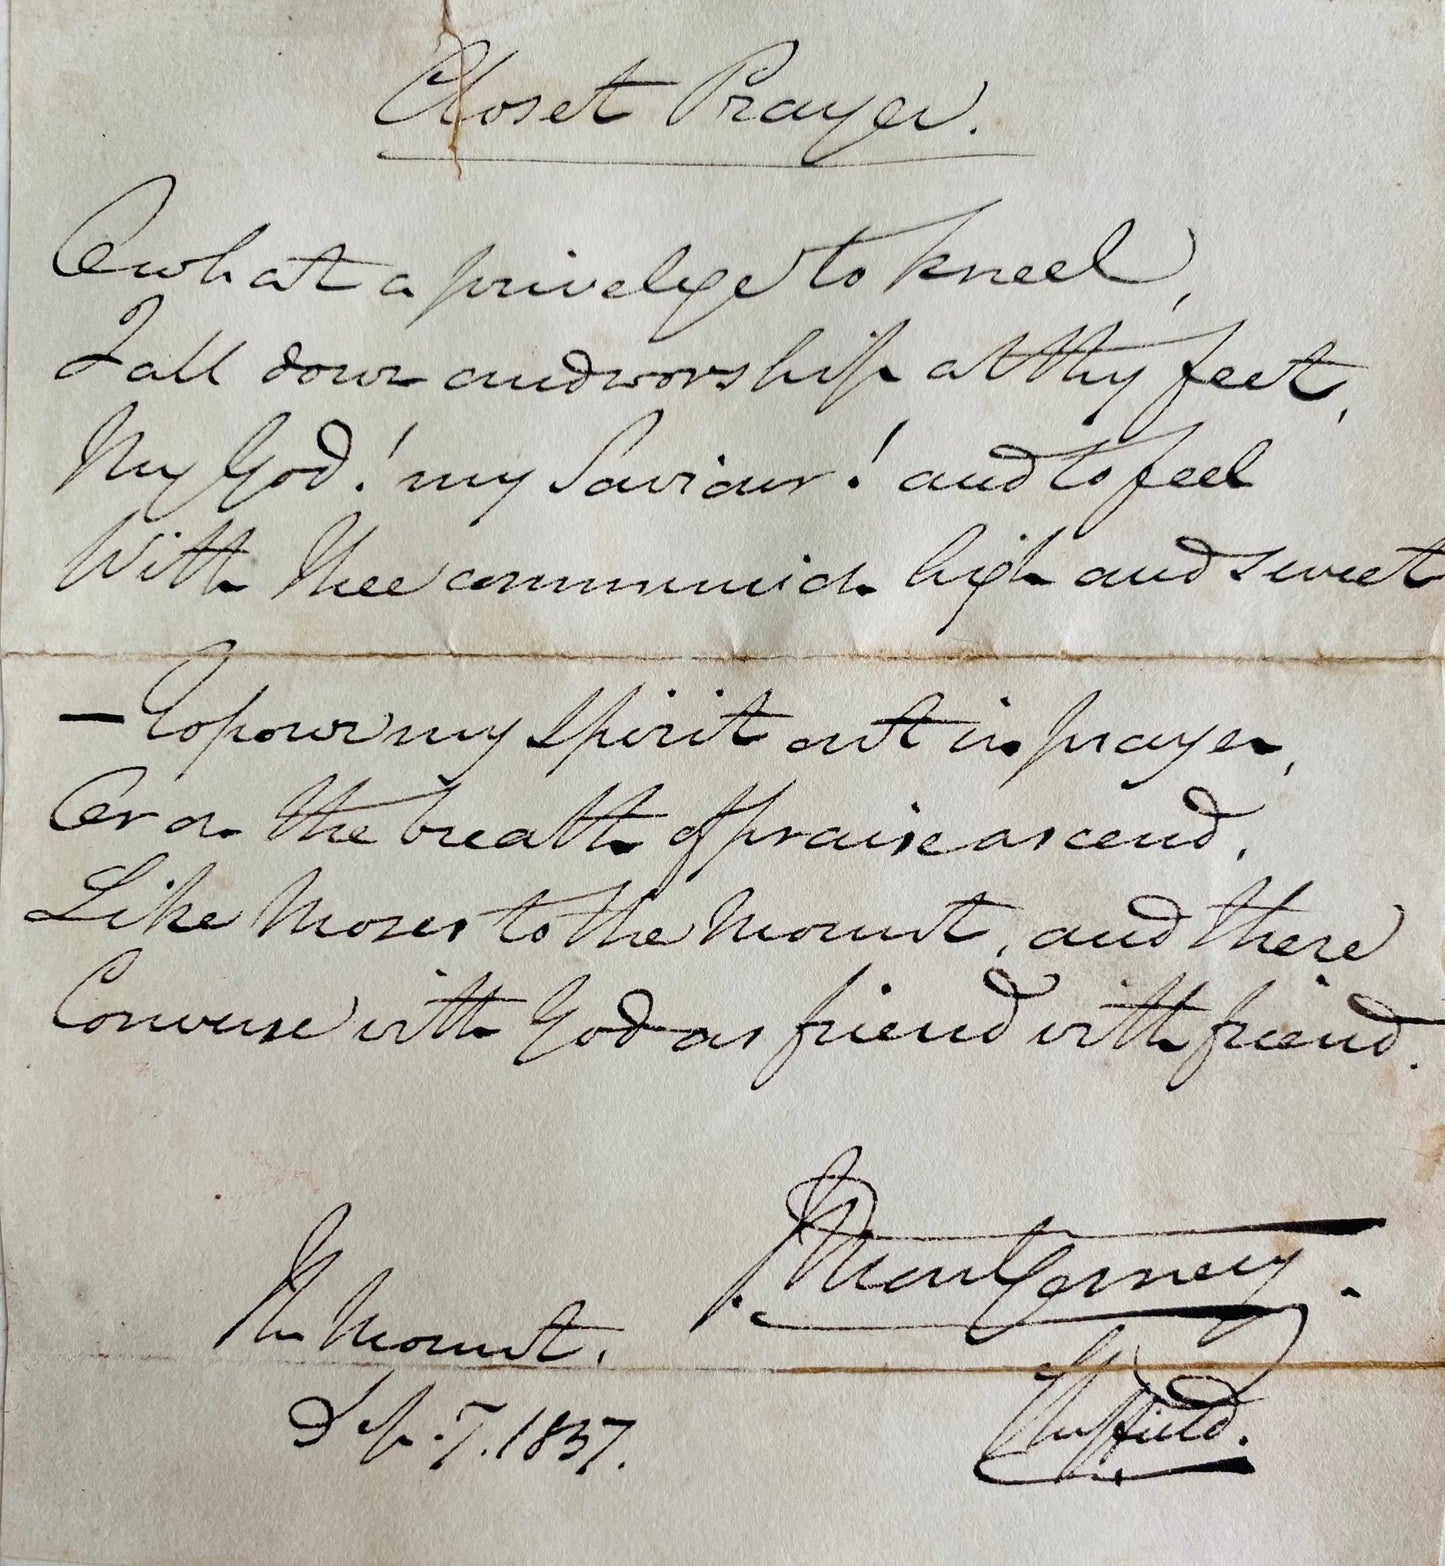 Closet Prayer.
O what a privelege to kneel,
Fall down and worship at thy feet,
My God! my Saviour! and to feel
With Thee communion high and sweet
— To pour my spirit out in prayer,
Or on the breath of praise ascend,
Like Moses to the Mount, and there
Converse with God as friend with friend.
J Montgomery.
The Mount,
Sheffield.
Sep. 7. 1837.